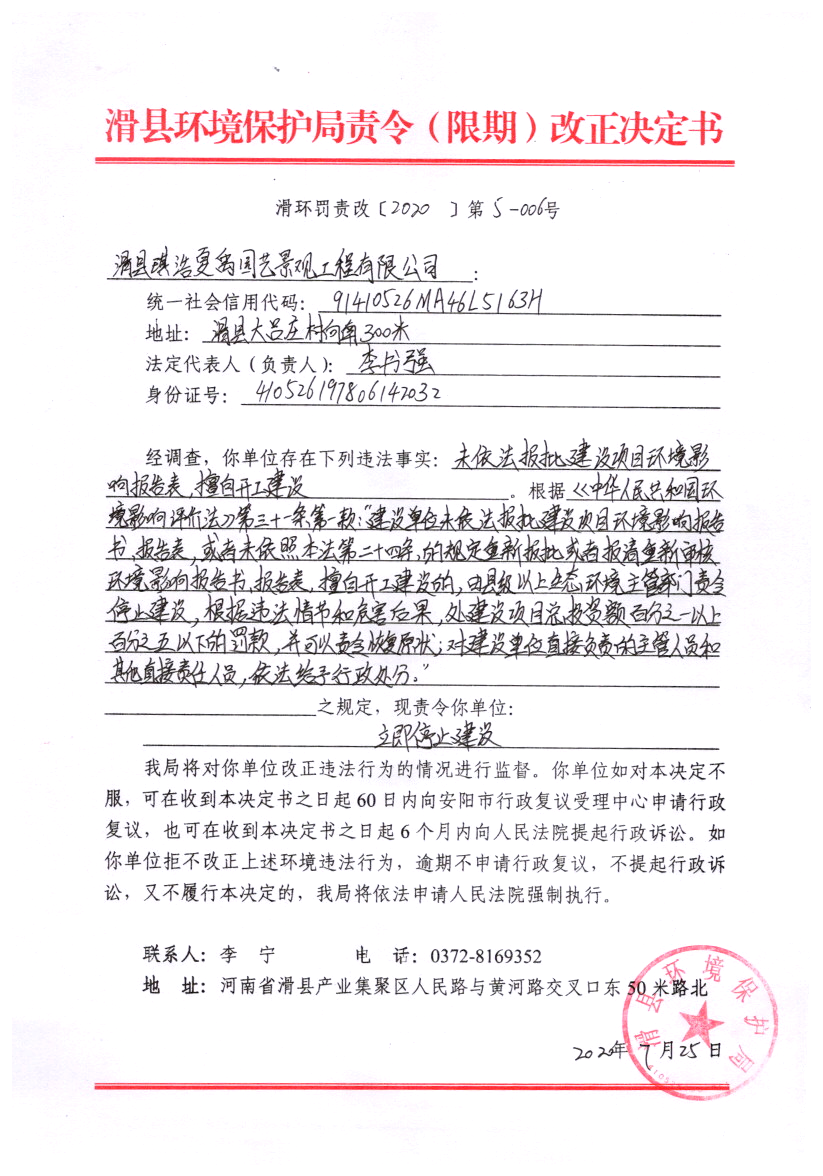 滑县环境保护局责令（限期）改正决定书
滑环罚责改〔2020 〕第 5-006号
滑县琪浩夏禹园艺景观工程有限公司：
统一社会信用代码： 91410526MA46L5163H
地址： 滑县大吕庄村向南300米
法定代表人（负责人）： 李书强
身份证号： 410526197806147032
经调查，你单位存在下列违法事实：未依法报批建设项目环境影
响报告表，擅自开工建设。根据《中华人民共和国环
境影响评价法》第三十一条第一款："建设单位未依法报批建设项目环境影响报告
书、报告表，或者未依照本法第二十四条的规定重新报批或者报请重新审核
环境影响报告书、报告表，擅自开工建设的，由县级以上生态环境主管部门责令
停止建设，根据违法情节和危害后果，处建设项目总投资额百分之一以上
百分之五以下的罚款，并可以责令恢复原状；对建设单位直接负责的主管人员和
其他直接责任人员，依法给予行政处分。"
之规定，现责令你单位：
立即停止建设
我局将对你单位改正违法行为的情况进行监督。你单位如对本决定不
服，可在收到本决定书之日起 60 日内向安阳市行政复议受理中心申请行政
复议，也可在收到本决定书之日起 6 个月内向人民法院提起行政诉讼。如
你单位拒不改正上述环境违法行为，逾期不申请行政复议，不提起行政诉
讼，又不履行本决定的，我局将依法申请人民法院强制执行。
联系人：李 宁 电 话：0372-8169352
地 址：河南省滑县产业集聚区人民路与黄河路交叉口东 50 米路北
2020年 7月25日
滑县环境保护局